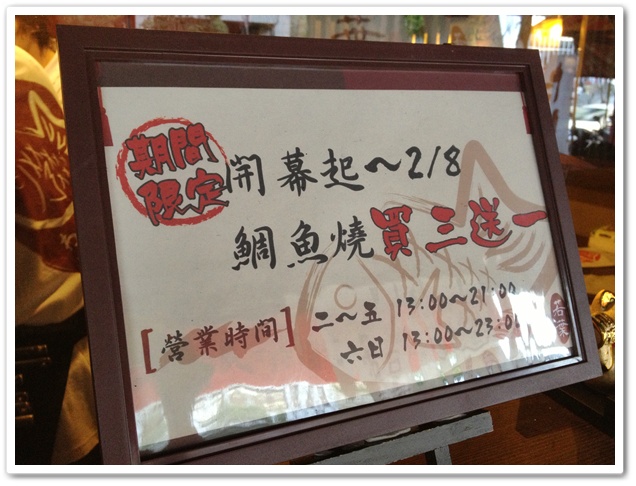 期間
限定
開幕起～2/8
鯛魚燒買三送一
[營業時間] 二～五 13:00～21:00
六日 13:00～23:00